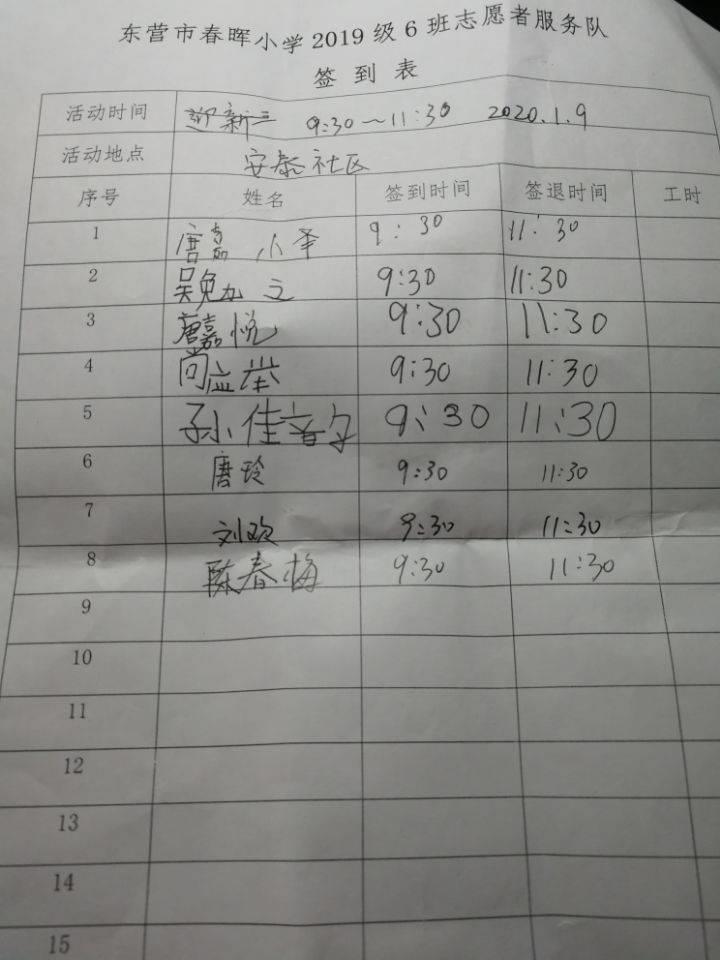 东营市春晖小学2019级6班志愿者服务队
签到表
活动时间 迎新 9:30～11:30 2020.1.9
活动地点 安泰社区
序号 姓名 签到时间 签退时间 工时
1 唐嘉 小泽 9:30 11:30
2 吴 之 9:30 11:30
3 唐嘉悦 9:30 11:30
4 尚益举 9:30 11:30
5 孙佳 9:30 11:30
6 唐玲 9:30 11:30
7 刘欢 9:30 11:30
8 陈春梅 9:30 11:30
9
10
11
12
13
14
15